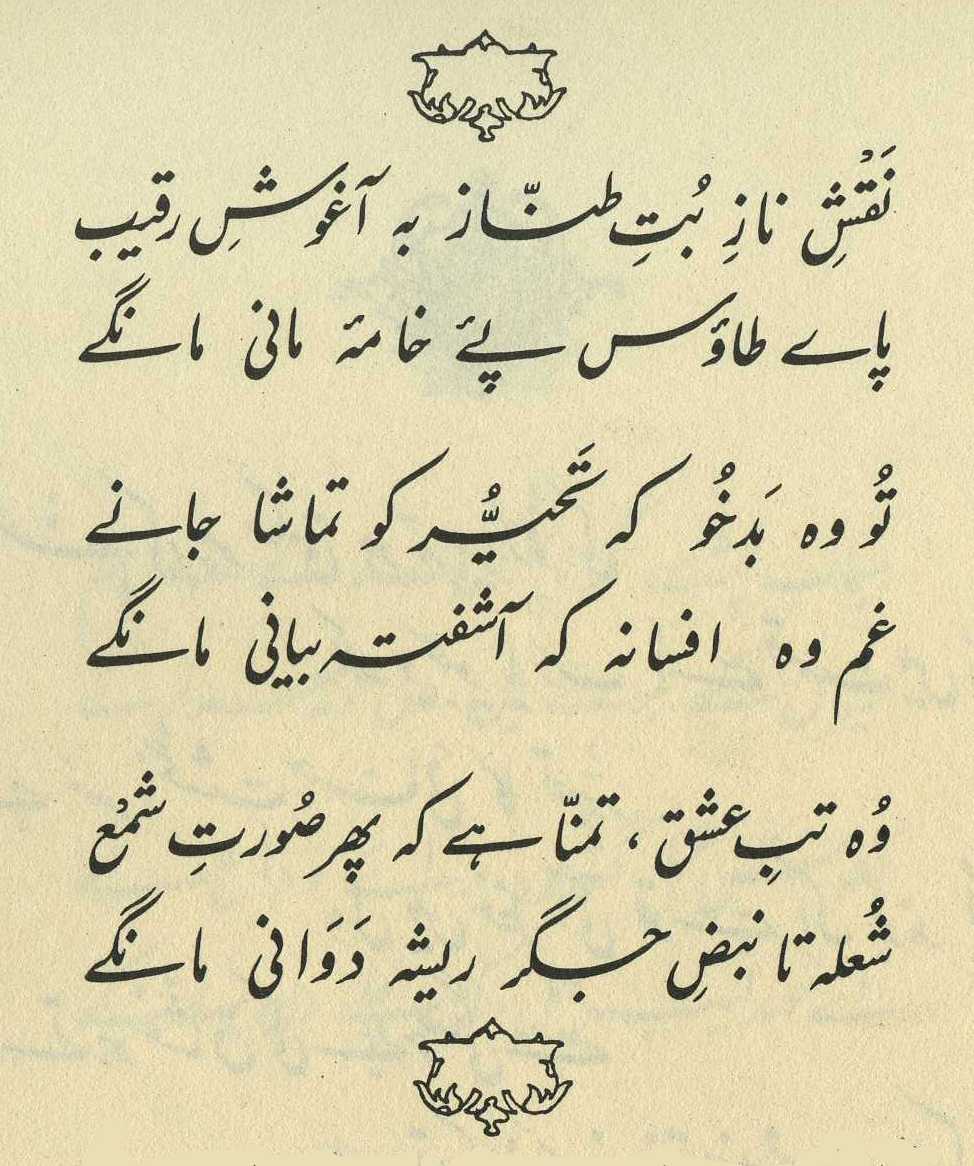 نَقْشِ نازِ بُتِ طنّاز بہ آغوشِ رقیب
پاے طاؤس پئے خامۂ مانی مانگے
تُو وہ بَدخُو کہ تَحیُّر کو تماشا جانے
غم وہ افسانہ کہ آشفتہ بیانی مانگے
وُہ تبِ عشق، تمنّا ہے کہ پھر صُورتِ شمْع
شُعلہ تا نبضِ جگر ریشہ دَوَانی مانگے